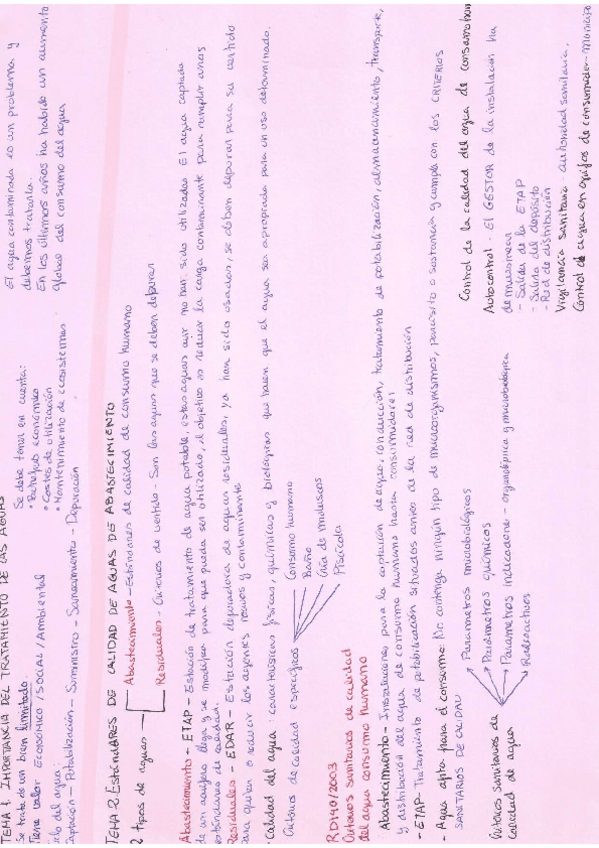 TEMA 1. IMPORTANCIA DEL TRATAMIENTO DE LAS AGUAS
Se trata de un bien limitado.
Tiene valor ECONÓMICO/SOCIAL/Ambiental
del agua:
Captación - Potabilización - Suministro - Saneamiento - Depuración
Se debe tener en cuenta:
• económico
• Costes de utilización
• Mantenimiento de ecosistemas
El agua contaminada es un problema y
debemos tratarla.
En los últimos años ha habido un aumento
global del consumo del agua
TEMA 2. ESTÁNDARES DE CALIDAD DE AGUAS DE ABASTECIMIENTO
2 tipos de aguas
Abastecimiento - Estándares de calidad de consumo humano
Residuales - Criterios de vertido - Son las aguas que se deben depurar
Abastecimiento - ETAP - Estación de tratamiento de agua potable, estas aguas aún no han sido utilizadas. El agua captada
de un acuífero llega y se modifica para que pueda ser utilizado, el objetivo es reducir la carga contaminante para cumplir unos
estándares de calidad.
Residuales - EDAR - Estación depuradora de aguas residuales, ya han sido usadas, se deben depurar para su vertido
para quitar o reducir los agentes nocivos y contaminante
- Calidad del agua: características físicas, químicas y biológicas que hacen que el agua sea apropiada para un uso determinado.
Criterios de calidad específicos
Consumo humano
Baño
Cría de moluscos
Piscícola
RD140/2003
Criterios sanitarios de calidad
del agua consumo humano
Abastecimiento - Instalaciones para la captación de agua, conducción, tratamiento de potabilización, almacenamiento, transporte,
y distribución del agua de consumo humano hasta consumidores
- ETAP - Tratamiento de potabilización situados antes de la red de distribución
- Agua apta para el consumo: No contenga ningún tipo de microorganismos, parásito o sustancia y cumpla con los CRITERIOS
SANITARIOS DE CALIDAD
Criterios sanitarios de
calidad de agua
Parámetros microbiológicos
Parámetros químicos
Parámetros indicadores - organoléptica y microbiológica
Radiactivos
Control de la calidad del agua de consumo hum
Autocontrol - El GESTOR de la instalación ha
de muestrear
- Salida de la ETAP
- Salida del depósito
- Red de distribución
Vigilancia Sanitaria - autoridad sanitaria.
Control de agua en grifos de consumidor - Municipio